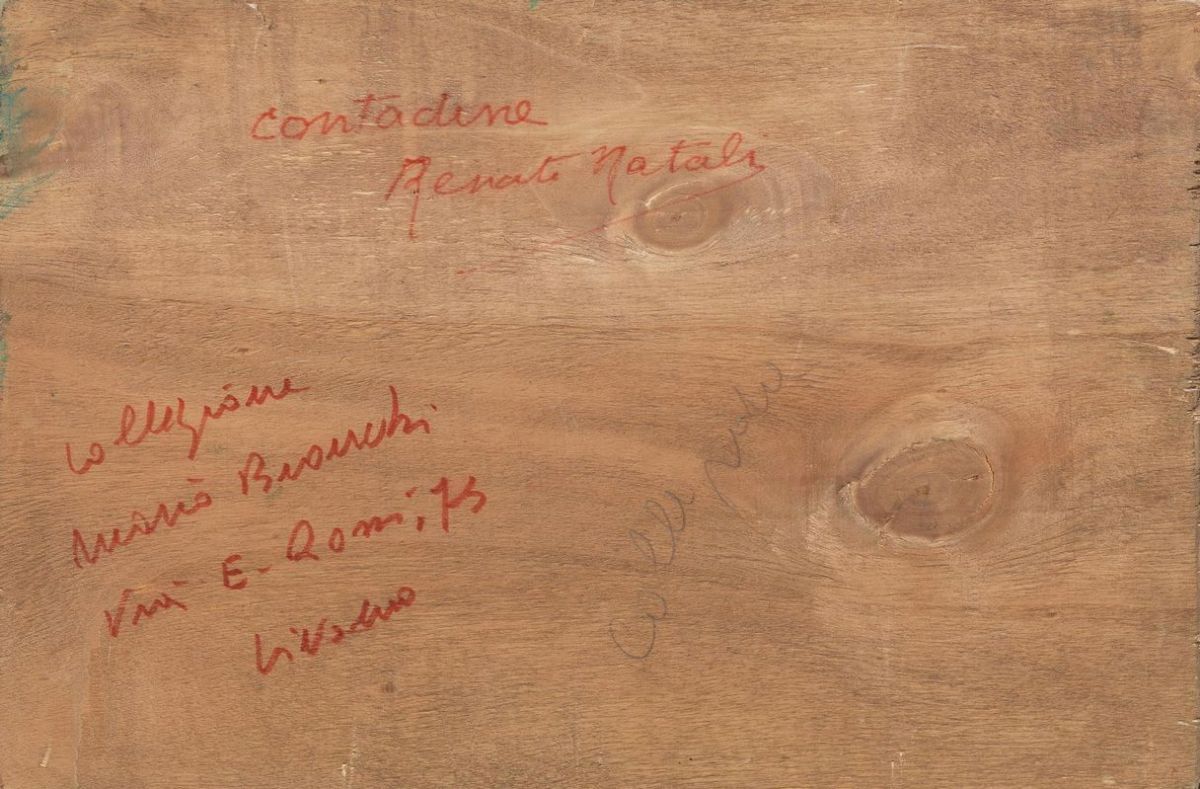 contadine
Renato Natali
Collezione
Mario Bianchi
Via E. Rossi, 75
Livorno